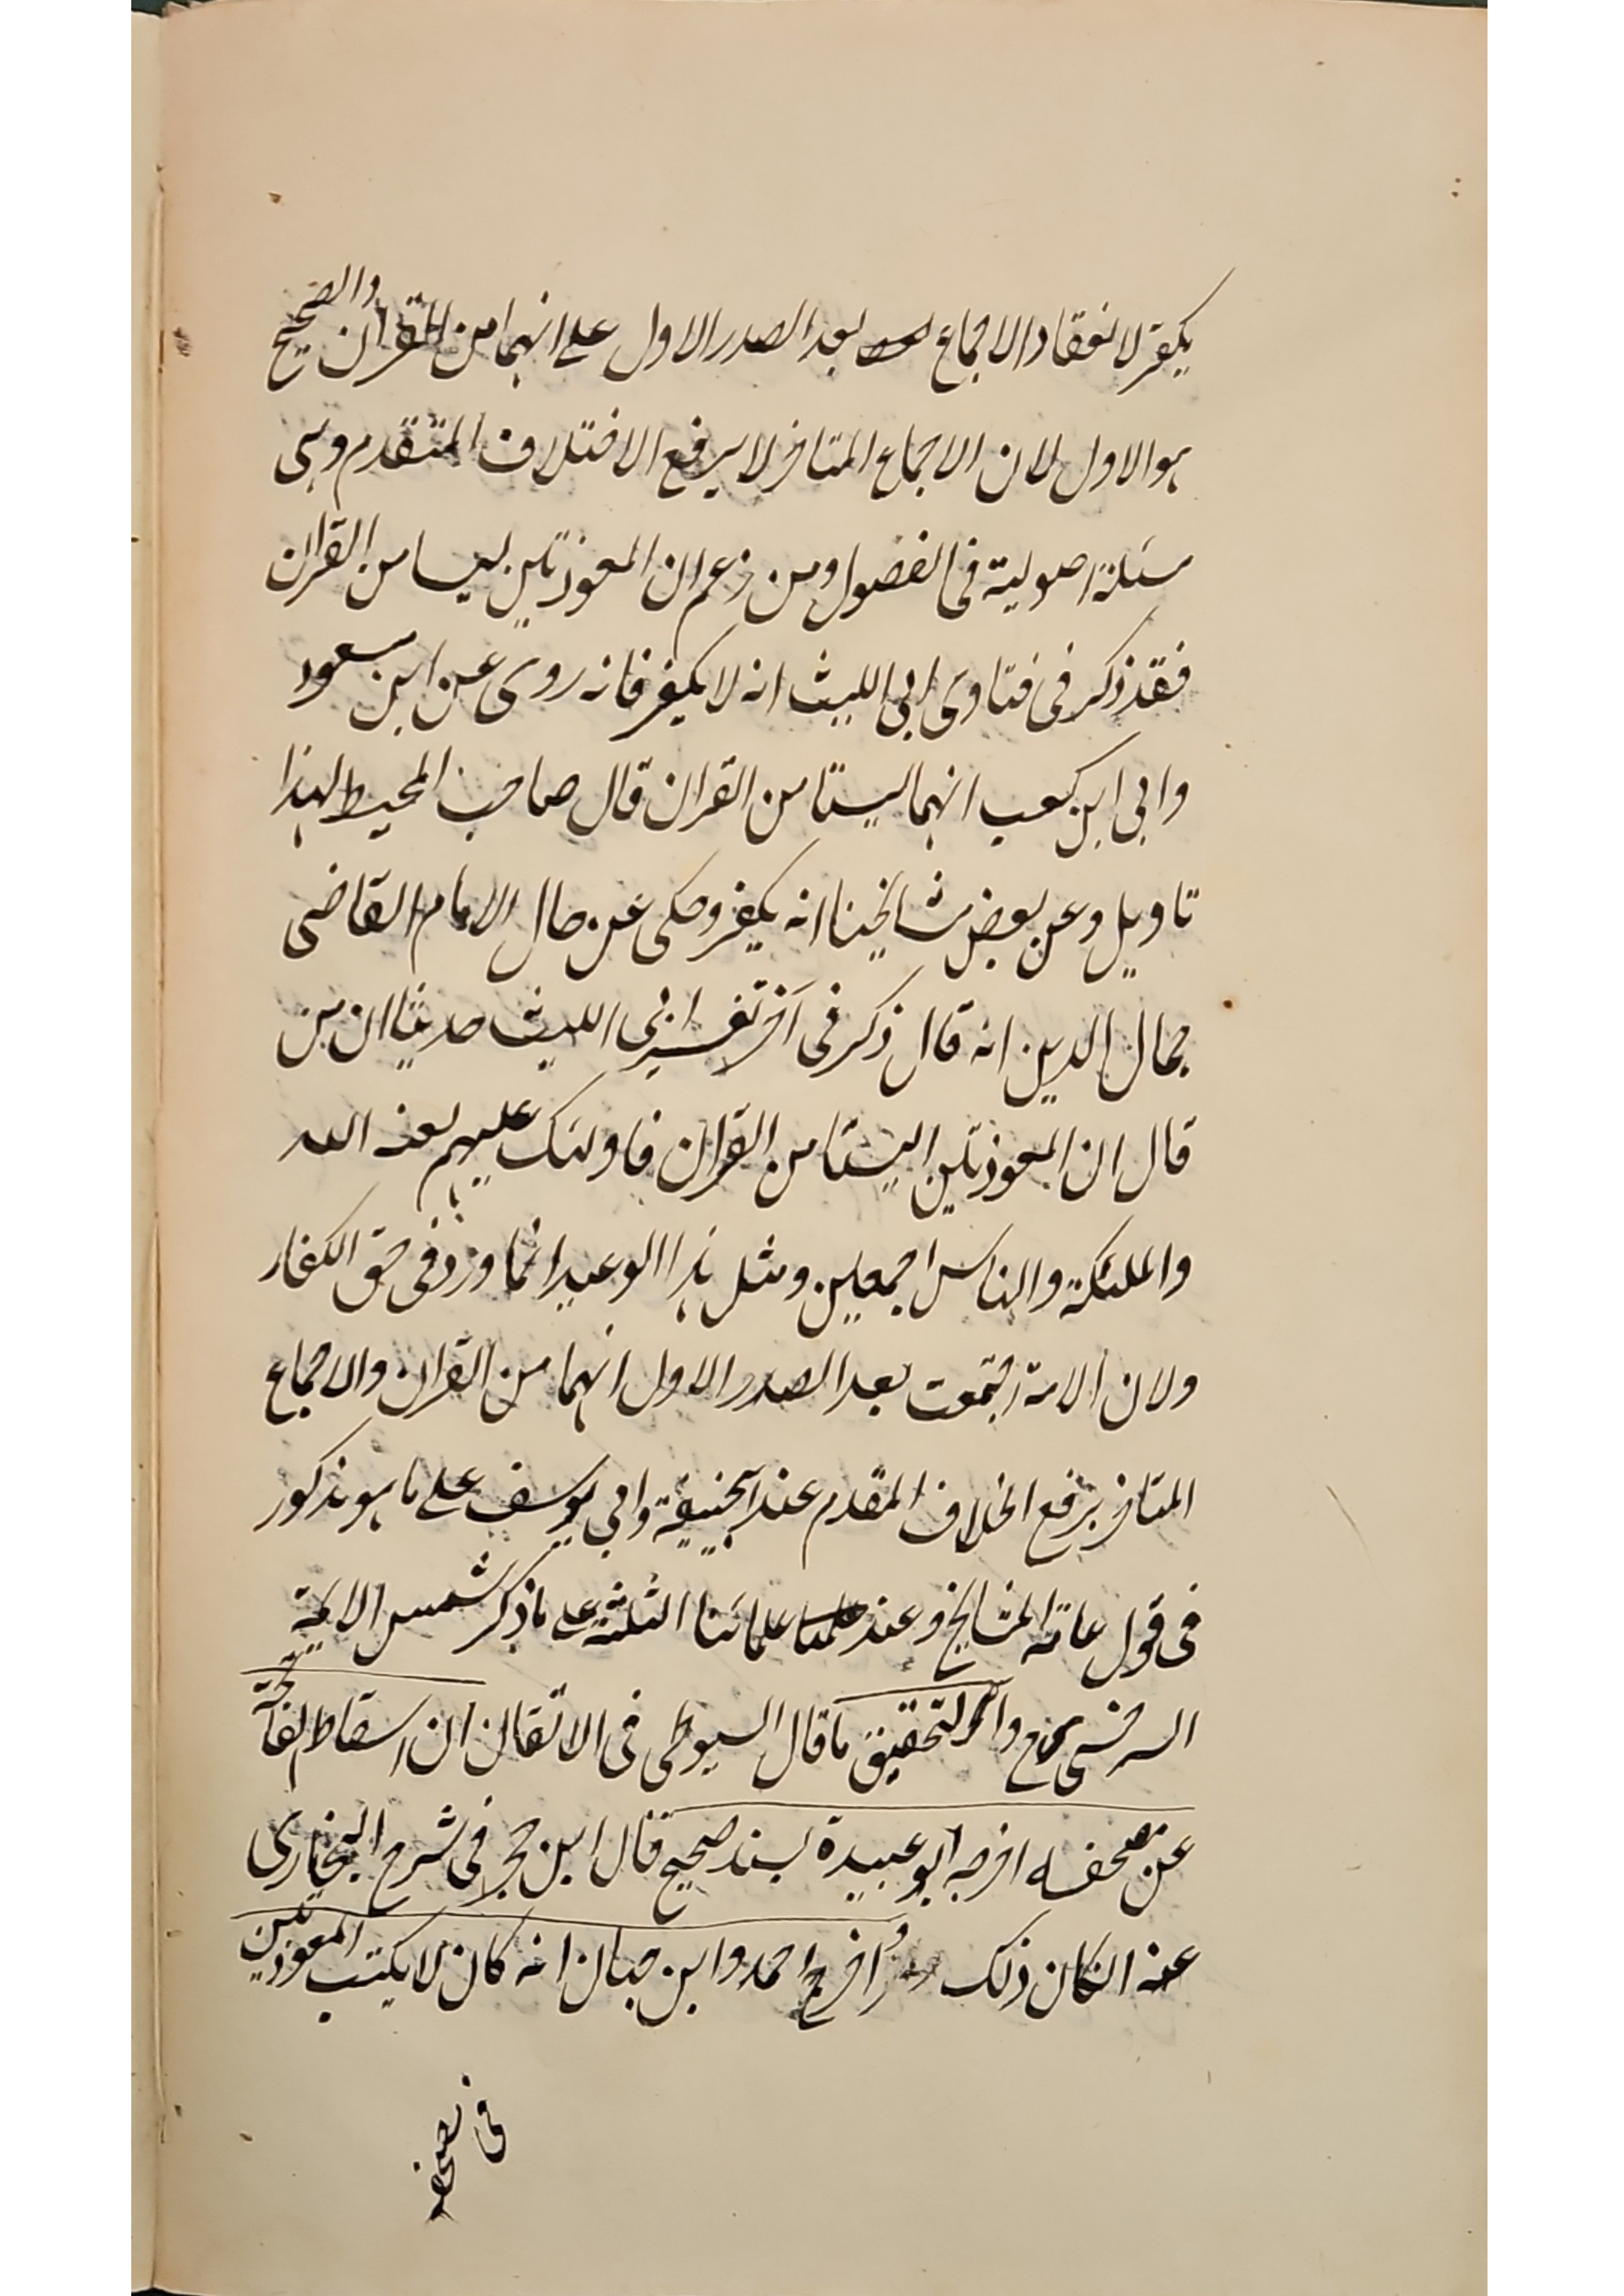 يكفر لانعقاد الاجماع بعد الصدر الاول على انهما من القران والصحيح
هو الاول لان الاجماع المتاخر لا يرفع الاختلاف المتقدم وهى
مسئلة اصولية فى الفصول ومن زعم ان المعوذتين ليسا من القران
فقد ذكر فى فتاوى ابى الليث انه لا يكفر فانه روى عن ابن مسعود
وابى ابن كعب انهما ليستا من القران قال صاحب المحيط لهذا
تاويل وعن بعض مشائخنا انه يكفر وحكى عن خال الامام القاضى
جمال الدين انه قال ذكر فى آخر تفسير ابى الليث حديثا ان من
قال ان المعوذتين ليستا من القران فاولئك عليهم لعنة الله
والملئكة والناس اجمعين ومثل هذا الوعيد انما ورد فى حق الكفار
ولان الامة اجتمعت بعد الصدر الاول انهما من القران والاجماع
المتاخر يرفع الخلاف المقدم عند ابيحنيفة وابى يوسف على ما هو مذكور
فى قول عامة المشايخ وعند علمائنا الثلثة على ما ذكر شمس الائمة
السرخسى والتحقيق ما قال السيوطى فى الاتقان ان اسقاط الفاتحة
عن مصحفه اخرجه ابو عبيدة بسند صحيح قال ابن حجر فى شرح البخارى
عنه انكان ذلك واخرج احمد وابن حبان انه كان لا يكتب المعوذتين
فى مصحفه